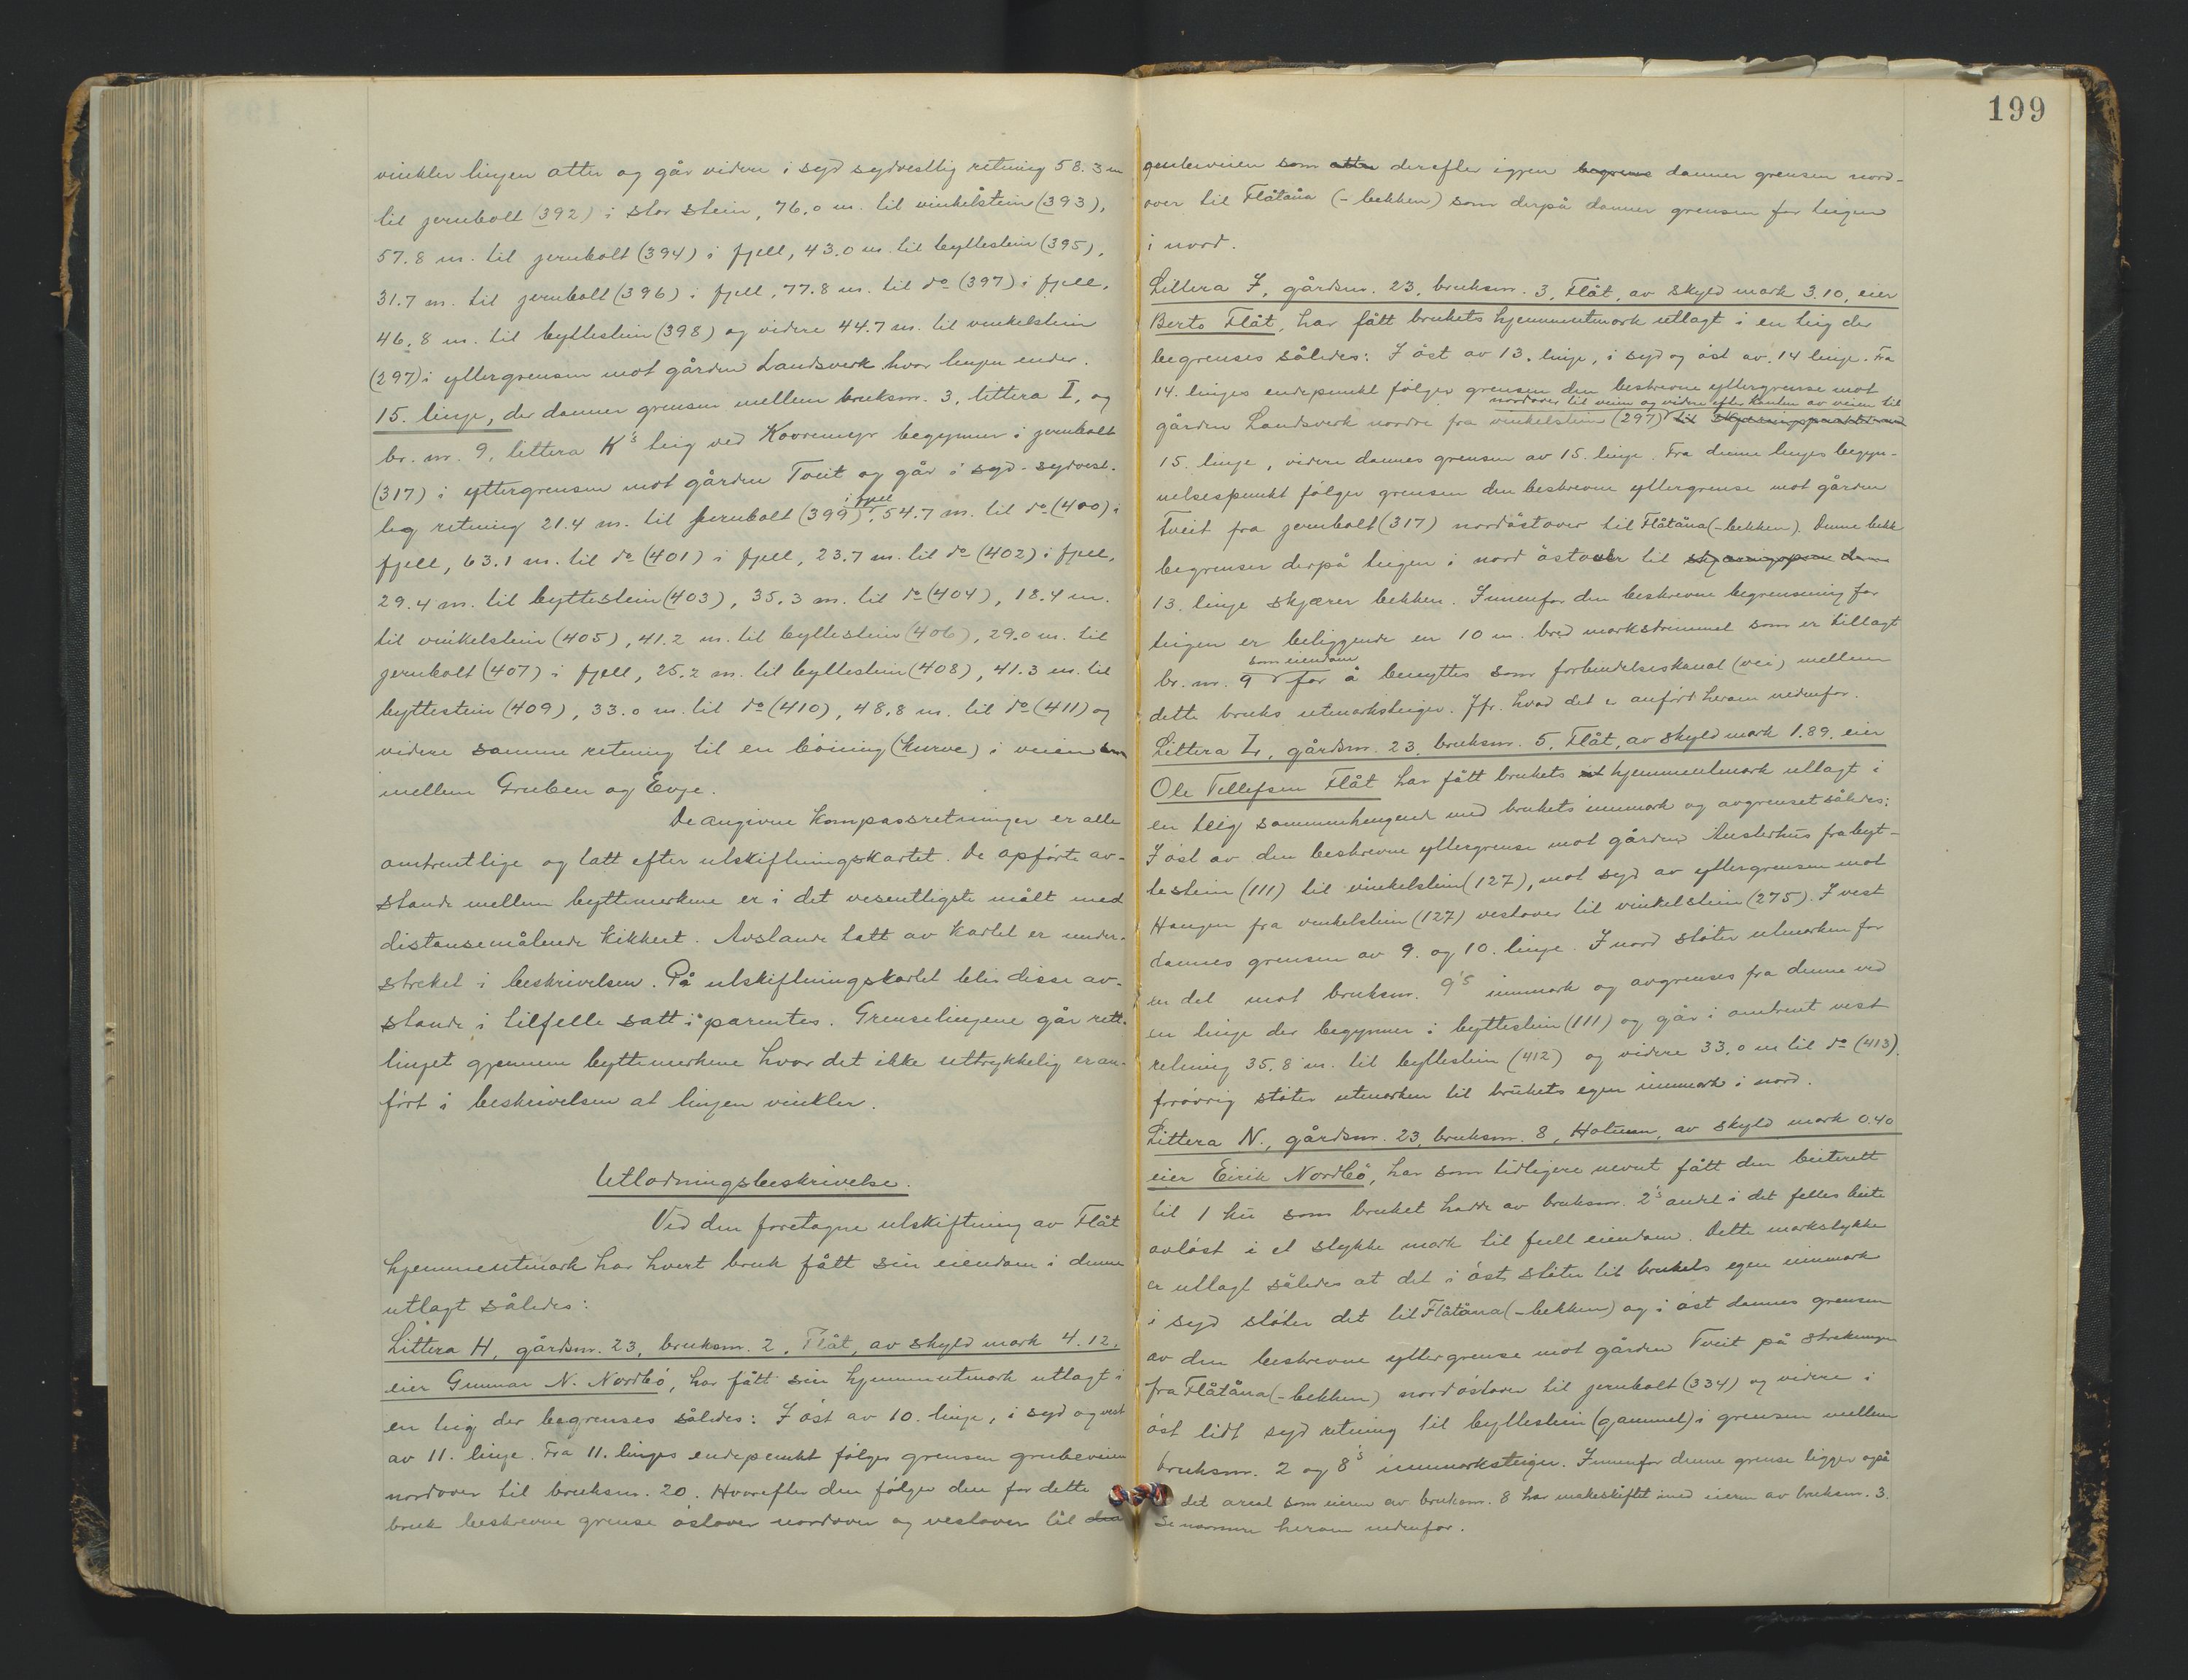 vinkler linjen atter og går videre i syd sydvestlig retning 58.3 m
til jernbolt (392) i stor stein, 76.0 m. til vinkelstein (393),
57.8 m. til jernbolt (394) i fjell, 43.0 m. til byttestein (395),
31.7 m. til jernbolt (396) i fjell, 77.8 m. til do (397) i fjell,
46.8 m. til byttestein (398) og videre 44.7 m. til vinkelstein
(297) i yttergrensen mot gården Landsverk hvor linjen ender.
15. linje, der danner grensen mellem bruksnr. 3, littera I, og
br. nr. 9, littera K's teig ved Kovremyr begynner i jernbolt
(317) i yttergrensen mot gården Tveit og går i syd-sydvest-
lig retning 21.4 m. til jernbolt (399) i fjell, 54.7 m. til do (400) i
fjell, 63.1 m. til do (401) i fjell, 23.7 m. til do (402) i fjell,
29.4 m. til byttestein (403), 35.3 m. til do (404), 18.4 m.
til vinkelstein (405), 41.2 m. til byttestein (406), 29.0 m. til
jernbolt (407) i fjell, 25.2 m. til byttestein (408), 41.3 m. til
byttestein (409), 33.0 m. til do (410), 48.8 m. til do (411) og
videre samme retning til en böining (kurve) i veien
mellem Gruben og Evje.
De angivne kompassretninger er alle
omtrentlige og tatt efter utskiftningskartet. De opförte av-
stande mellem byttemerkene er i det vesentligste målt med
distansemålende kikkert. Avstande tatt av kartet er under-
streket i beskrivelsen. På utskiftningskartet blev disse av-
stande i tilfelle satt i parentes. Grenselinjene går rett-
linjet gjennem byttemerkene hvor det ikke uttrykkelig er an-
fört i beskrivelsen at linjen vinkler.
Utlodningsbeskrivelse.
Ved den foretagne utskiftning av Flåt
hjemmeutmark har hvert bruk fått sin eiendom i denne
utlagt således:
Littera H, gårdsnr. 23, bruksnr. 2, Flåt, av skyld mark 4.12,
eier Gunnar N. Nordbö, har fått sin hjemmeutmark utlagt i
en teig der begrenses således: I öst av 10. linje, i syd og vest
av 11. linje. Fra 11. linjes endepunkt fölger grensen grubeveien
nordover til bruksnr. 20. Hvorefter den fölger den for dette
bruk beskrevne grense östover nordover og vestover til den
199
grubeveien som atter derefter igjen begrens danner grensen nord-
over til Flåtåna (-bekken) som derpå danner grensen for teigen
i nord.
Littera I, gårdsnr. 23, bruksnr. 3, Flåt, av skyld mark 3.10, eier
Berto Flåt, har fått brukets hjemmeutmark utlagt i en teig der
begrenses således: I öst av 13. linje, i syd og öst av 14 linje. Fra
14. linjes endepunkt fölger grensen den beskrevne yttergrense mot
nordover til veien og videre efter kanten av veien til
gården Landsverk nordre fra vinkelstein (297) til
15. linje, videre dannes grensen av 15. linje. Fra denne linjes begyn-
nelsespunkt fölger grensen den beskrevne yttergrense mot gården
Tveit fra jernbolt (317) nordöstover til Flåtåna (-bekken). Denne bekk
begrenser derpå teigen i nord östover til
13. linje skjærer bekken. Innenfor den beskrevne begrensning for
teigen er beliggende en 10 m. bred markstrimmel som er tillagt
som eiendom
br. nr. 9 for å benyttes som forbindelseskanal (vei) mellem
dette bruks utmarksteiger. Jfr. hvad det er anfört herom nedenfor.
Littera L, gårdsnr. 23, bruksnr. 5, Flåt, av skyld mark 1.89, eier
Ole Tellefsen Flåt har fått brukets ut hjemmeutmark utlagt i
en teig sammenhengende med brukets innmark og avgrenset således:
I öst av den beskrevne yttergrense mot gården Austerhus fra byt-
testein (111) til vinkelstein (127), mot syd av yttergrensen mot
Haugen fra vinkelstein (127) vestover til vinkelstein (275). I vest
dannes grensen av 9. og 10. linje. I nord stöter utmarken for
en del mot bruksnr. 9's innmark og avgrenses fra denne ved
en linje der begynner i byttestein (111) og går i omtrent vest
retning 35.8 m. til byttestein (412) og videre 33.0 m til do (413).
forövrig stöter utmarken til brukets egen innmark i nord.
Littera N., gårdsnr. 23, bruksnr. 8, Holmen, av skyld mark 0.40
eier Eirik Nordbö, har som tidligere nevnt fått den beiterett
til 1 ku som bruket hadde av bruksnr. 2's andel i det felles beite
avlöst i et stykke mark til full eiendom. Dette markstykke
er utlagt således at det i öst stöter til brukets egen innmark
i syd stöter det til Flåtåna (-bekken) og i öst dannes grensen
av den beskrevne yttergrense mot gården Tveit på strekningen
fra Flåtåna (-bekken) nordöstover til jernbolt (334) og videre i
öst lidt syd retning til byttestein (gammel) i grensen mellem
bruksnr. 2 og 8's innmarksteiger. Innenfor denne grense ligger også
det areal som eieren av bruksnr. 8 har makeskiftet med eieren av bruksnr. 3.
Se nærmere herom nedenfor.